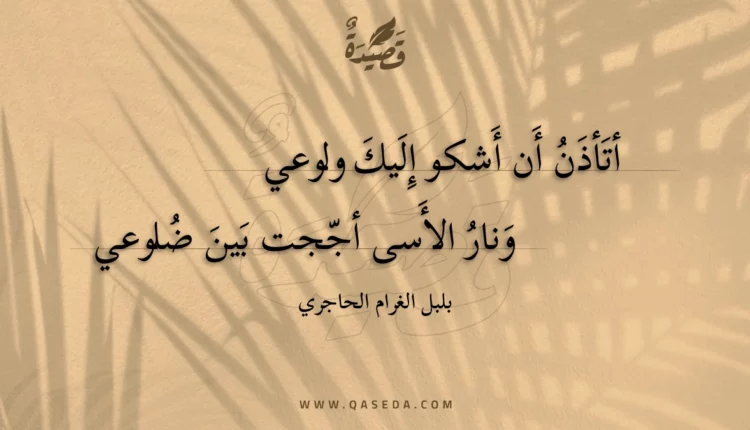 قَصِيْدَةٌ
أتَأذَنُ أَن أَشكو إِلَيكَ ولوعي
وَنارُ الأَسى أجّجت بَينَ ضُلوعي
بلبل الغرام الحاجري
WWW.QASEDA.COM